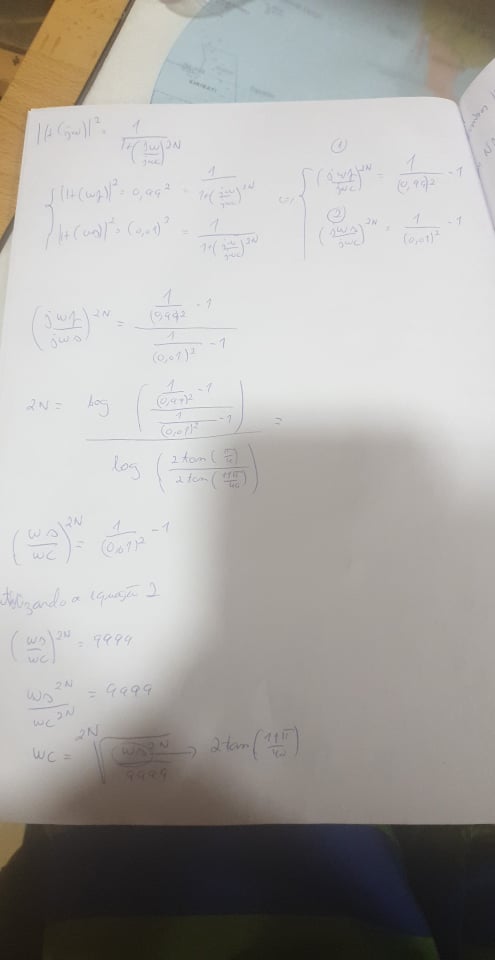 |H(jw)|² = 1 / (1+(jw/jwc)^2N)
{ |H(wp)|² = 0,99² = 1 / (1+(jw/jwc)^2N)
{ |H(ws)|² = (0,01)² = 1 / (1+(jw/jwc)^2N)
(1)
(jwp/jwc)^2N = 1/(0,99)² - 1
(2)
(jws/jwc)^2N = 1/(0,01)² - 1
(jwp/jws)^2N = (1/(0,99)² - 1) / (1/(0,01)² - 1)
2N = log((1/(0,99)² - 1) / (1/(0,01)² - 1)) / log(2tan(π/4) / 2tan(11π/40)) =
(ws/wc)^2N = 1/(0,01)² - 1
utilizando a equação 2
(ws/wc)^2N = 9999
ws^2N / wc^2N = 9999
wc = 2N√((ws)^2N / 9999) → 2tan(11π/40)